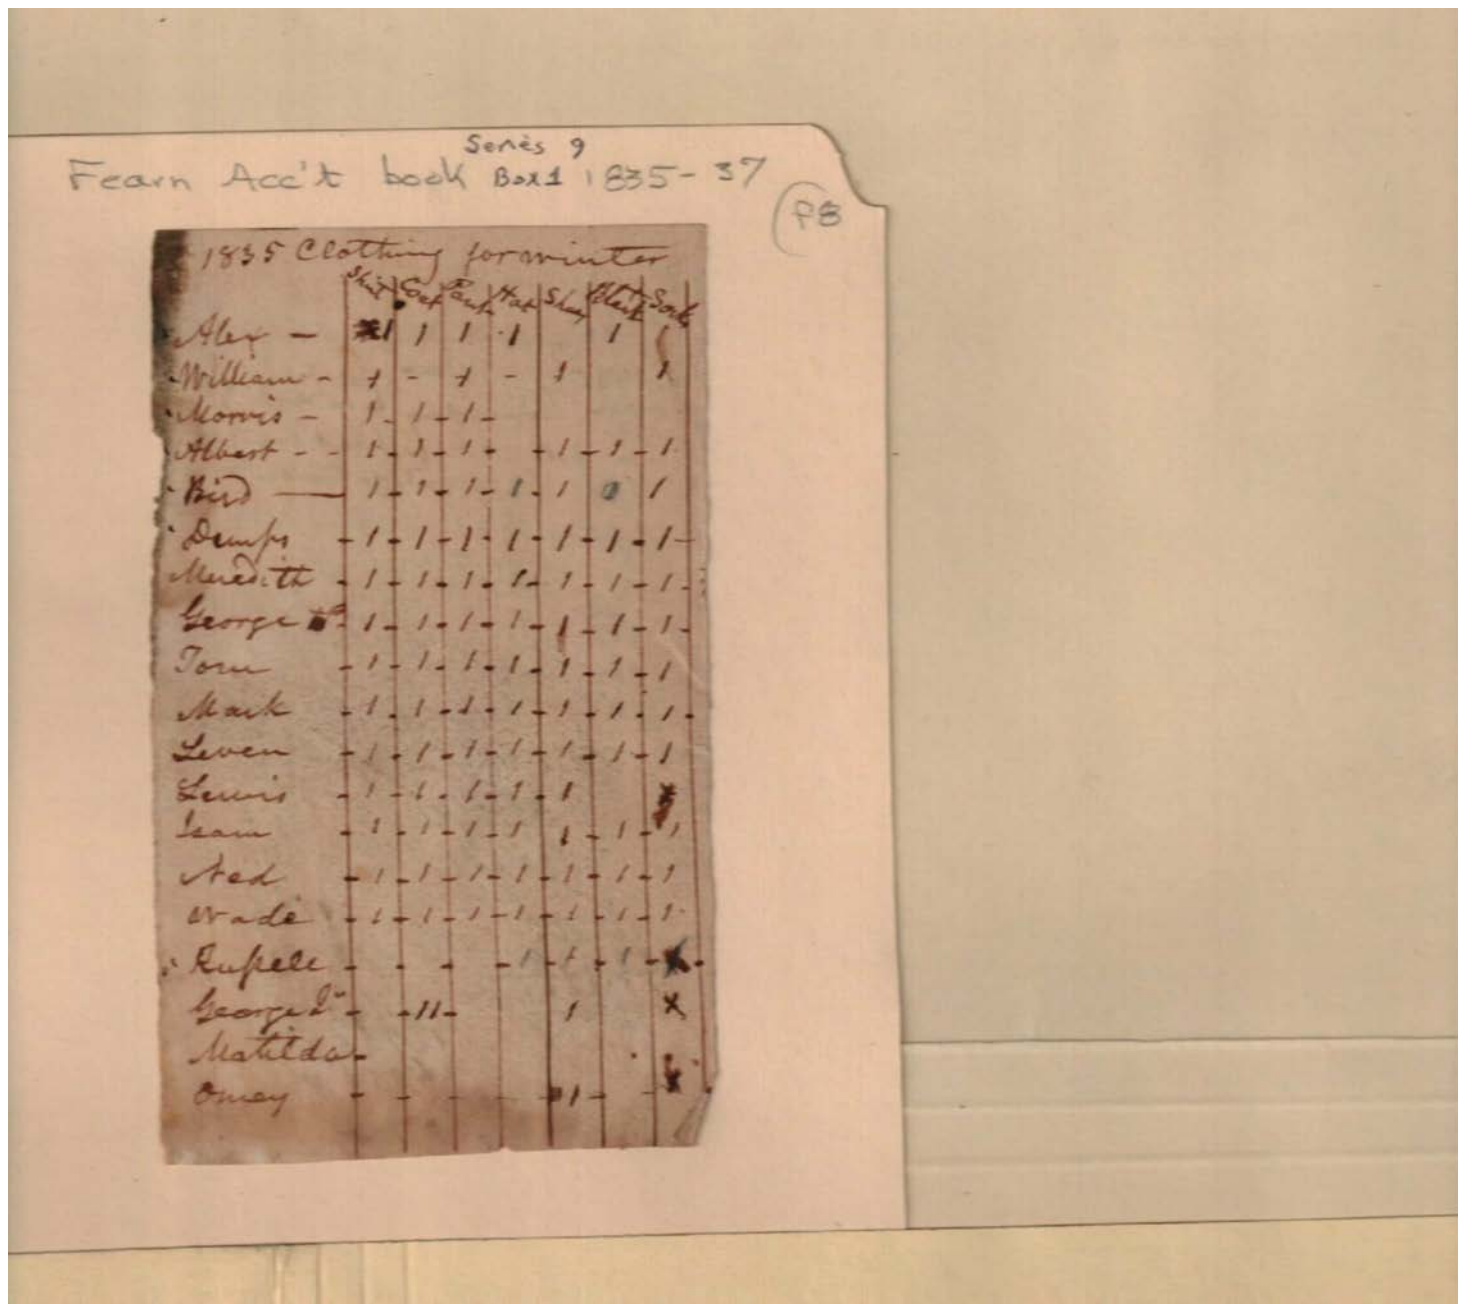 Series 9
Fearn Acc't book Box 1 1835-37
P8
1835 Clothing for winter
Shirt Coat Pants Hat Shoes Blank Socks
Alex – 1 1 1 1 1 1
William – 1 - 1 - 1 1
Morris – 1 1 1
Albert - - 1 1 1 1 1 1
Bird — 1 1 1 1 1 0 1
Dumps 1 1 1 1 1 1 1
Meredith 1 1 1 1 1 1 1
George 1 1 1 1 1 1 1
Tom 1 1 1 1 1 1 1
Mark 1 1 1 1 1 1 1
Leven 1 1 1 1 1 1 1
Lewis 1 1 1 1 1 x
Isam 1 1 1 1 1 1 1
Ned 1 1 1 1 1 1 1
Wade 1 1 1 1 1 1 1
Russell 1 1 1 x
George Jr 11 1 x
Matilda
Omey 1 x